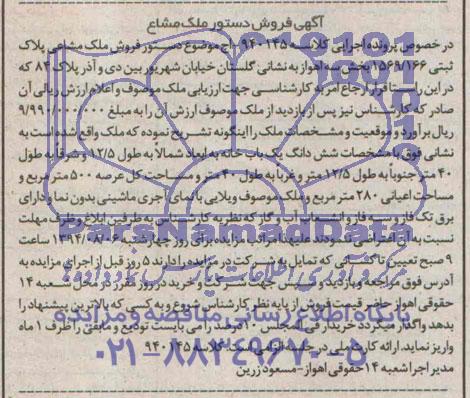 آگهی فروش دستور ملک مشاع
در خصوص پرونده اجرایی کلاسه ۹۴۰۱۴۵ اج موضوع دستور فروش ملک مشاعی پلاک
ثبتی ۱۵۶۹/۱۶۶ بخش سه اهواز به نشانی گلستان خیابان شهریور بین دی و آذر پلاک ۸۴ که
در این راستا قرار ارجاع امر به کارشناسی جهت ارزیابی ملک موصوف و اعلام ارزش ریالی آن
صادر که کارشناس نیز پس از بازدید از ملک موصوف ارزش آن را به مبلغ ۹/۹۹۰/۰۰۰/۰۰۰
ریال برآورد و موقعیت و مشخصات ملک را اینگونه تشریح نموده که ملک واقع شده است به
نشانی فوق با مشخصات شش دانگ یک باب خانه به ابعاد شمالاً به طول ۱۲/۵ و شرقاً به طول
۴۰ متر جنوباً به طول ۱۲/۵ متر و غربا به طول ۴۰ متر و مساحت کل عرصه ۵۰۰ متر مربع و
مساحت اعیانی ۲۸۰ متر مربع و ملک موصوف ویلایی با نمای آجری ماشینی بدون نما و دارای
برق تک فاز و سه فاز و انشعاب آب و گاز که نظریه کارشناس به طرفین ابلاغ و ظرف مهلت
نسبت به آن اعتراضی ننمودند علیهذا مراتب مزایده برای روز چهارشنبه ۱۳۹۴/۰۸/۰۶ ساعت
۹ صبح تعیین تا کسانی که تمایل به شرکت در مزایده را دارند ۵ روز قبل از اجرای مزایده به
آدرس فوق مراجعه و بازدید و سپس جهت شرکت و خرید در روز مقرر در محل شعبه ۱۴
حقوقی اهواز حضور قیمت فروش از پایه نظر کارشناس شروع و به کسی که بالاترین پیشنهاد را
بدهد واگذار میگردد خریدار فی المجلس ۱۰ درصد را می بایست تودیع و مابقی را ظرف ۱ ماه
واریز نماید. ارائه کارت ملی در جلسه الزامی است. کلاسه ۹۴۰۱۴۵
مدیر اجرا شعبه ۱۴ حقوقی اهواز - مسعود زرین
ParsNamadData
مرکز فرآوری اطلاعات پارس نماد داده ها
پایگاه اطلاع رسانی مناقصه و مزایده
۰۲۱-۸۸۳۴۹۶۷۰-۵